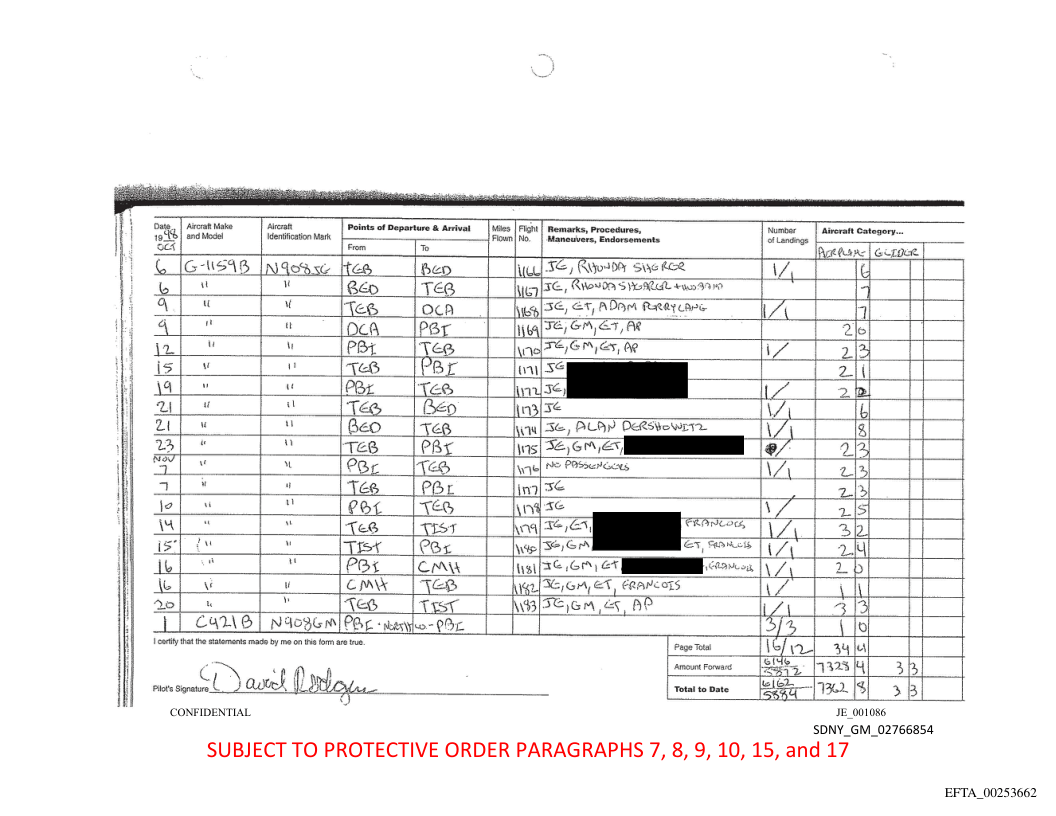 Date 1998 OCT | Aircraft Make and Model | Aircraft Identification Mark | Points of Departure & Arrival | Miles Flown | Flight No. | Remarks, Procedures, Maneuvers, Endorsements | Number of Landings | Aircraft Category...
From | To | AIRPLANE | GLIDER
6 G-1159B N908JE TEB BED 1166 JE, RHONDA SHERER 1/1 6
6 " " BED TEB 1167 JE, RHONDA SHEARER 7
9 " " TEB DCA 1168 JE, ET, ADAM PERRYLANG 1/1 7
9 " " DCA PBI 1169 JE, GM, ET, AP 2 0
12 " " PBI TEB 1170 JE, GM, ET, AP 1/ 2 3
15 " " TEB PBI 1171 JE 2 1
19 " " PBI TEB 1172 JE, 1/ 2
21 " " TEB BED 1173 JE 1/1 6
21 " " BED TEB 1174 JE, ALAN DERSHOWITZ 1/1 8
23 " " TEB PBI 1175 JE, GM, ET, 2 3
NOV
7 " " PBI TEB 1176 NO PASSENGERS 1/1 2 3
7 " " TEB PBI 1177 JE 2 3
10 " " PBI TEB 1178 JE 1/ 2 5
14 " " TEB TIST 1179 JE, ET, FRANCOIS 1/1 3 2
15 " " TIST PBI 1180 JE, GM, ET, FRANCOIS 1/1 2 4
16 " " PBI CMH 1181 JE, GM, ET , FRANCOIS 1/1 2 0
16 " " CMH TEB 1182 JE, GM, ET, FRANCOIS 1/ 1 1
20 " " TEB TIST 1183 JE, GM, ET, AP 1/1 3 3
1 C421B N908GM PBI - NORTH CO. - PBI 3/3 1 0
I certify that the statements made by me on this form are true.
Page Total 16/12 34 4
Amount Forward 6146 5872 7328 4 3 3
Pilot's Signature David Rodgers
Total to Date 6162 5884 7362 8 3 3
CONFIDENTIAL
JE_001086
SDNY_GM_02766854
SUBJECT TO PROTECTIVE ORDER PARAGRAPHS 7, 8, 9, 10, 15, and 17
EFTA_00253662